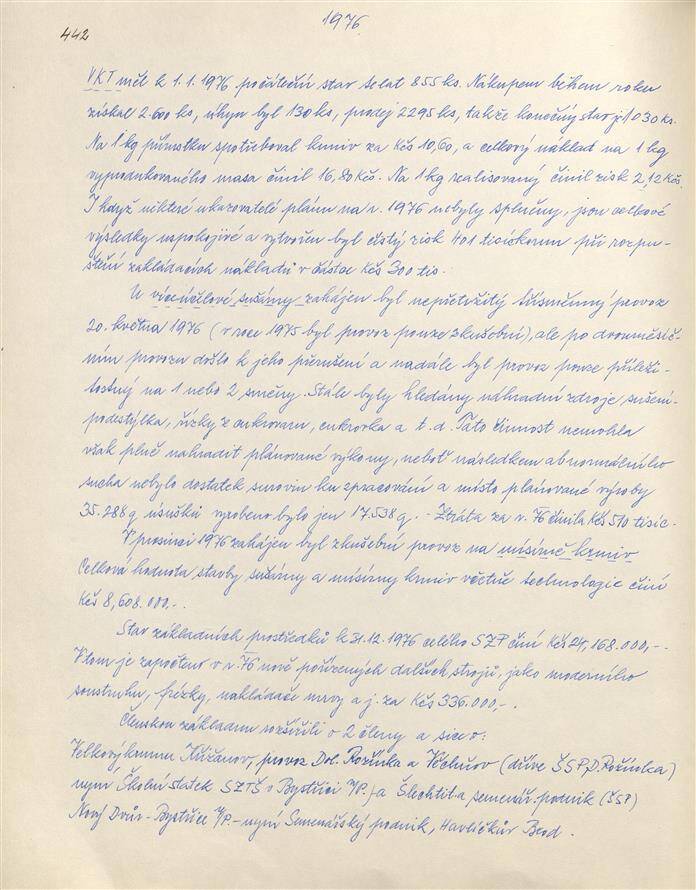 1976.
442
VKT měl k 1.1.1976 počáteční stav selat 855 ks. Nákupem během roku
získal 2.600 ks, úhyn byl 130 ks, prodej 2295 ks, takže konečný stav je 1030 ks.
Na 1 kg přírustku spotřeboval krmiv za Kčs 10,60, a celkový náklad na 1 kg
vyprodukovaného masa činil 16,80 Kčs. Na 1 kg realisovaný činil zisk 2,12 Kčs.
I když některé ukazovatelé plánu na r. 1976 nebyly splněny, jsou celkové
výsledky uspokojivé a vytvořen byl čistý zisk 401 tisíckorun při rozpu-
štění zakládacích nákladů v částce Kčs 300 tis.
U víceúčelové sušárny zahájen byl nepřetržitý třísměnný provoz
20. května 1976 (v roce 1975 byl provoz pouze zkušební), ale po dvouměsíč-
ním provozu došlo k jeho přerušení a nadále byl provoz pouze příleži-
tostný na 1 nebo 2 směny. Stále byly hledány náhradní zdroje sušení-
podestýlka, řízky z cukrovaru, cukrovka a t. d. Tato činnost nemohla
však plně nahradit plánované výkony, neboť následkem abnormálního
sucha nebylo dostatek surovin ku zpracování a místo plánované výroby
35.288 q úsušků vyrobeno bylo jen 17.538 q. - Ztráta za r. 76 činila Kčs 510 tisíc.
V prosinci 1976 zahájen byl zkušební provoz na mísírně krmiv
Celková hodnota stavby sušárny a mísírny krmiv včetně technologie činí
Kčs 8,608.000,-.
Stav základních prostředků k 31.12.1976 celého SZP činí Kčs 24,168.000,-.
V tom je započteno v r. 76 nově pořízených dalších strojů, jako moderního
soustruhu, frézky, nakládače mrvy a j. za Kčs 336.000,-.
Členskou základnu rozšířili o 2 členy a sice o:
Velkovýkrmnu Křižanov, provoz Dol. Rožínka a Věchnov (dříve ŠSP, D. Rožínka)
nyní Školní statek SZTŠ v Bystřici n/P.) a Šlechtit. a semenář. podnik (ŠSP)
Nový Dvůr - Bystřice n/P. - nyní Semenářský podnik, Havlíčkův Brod.